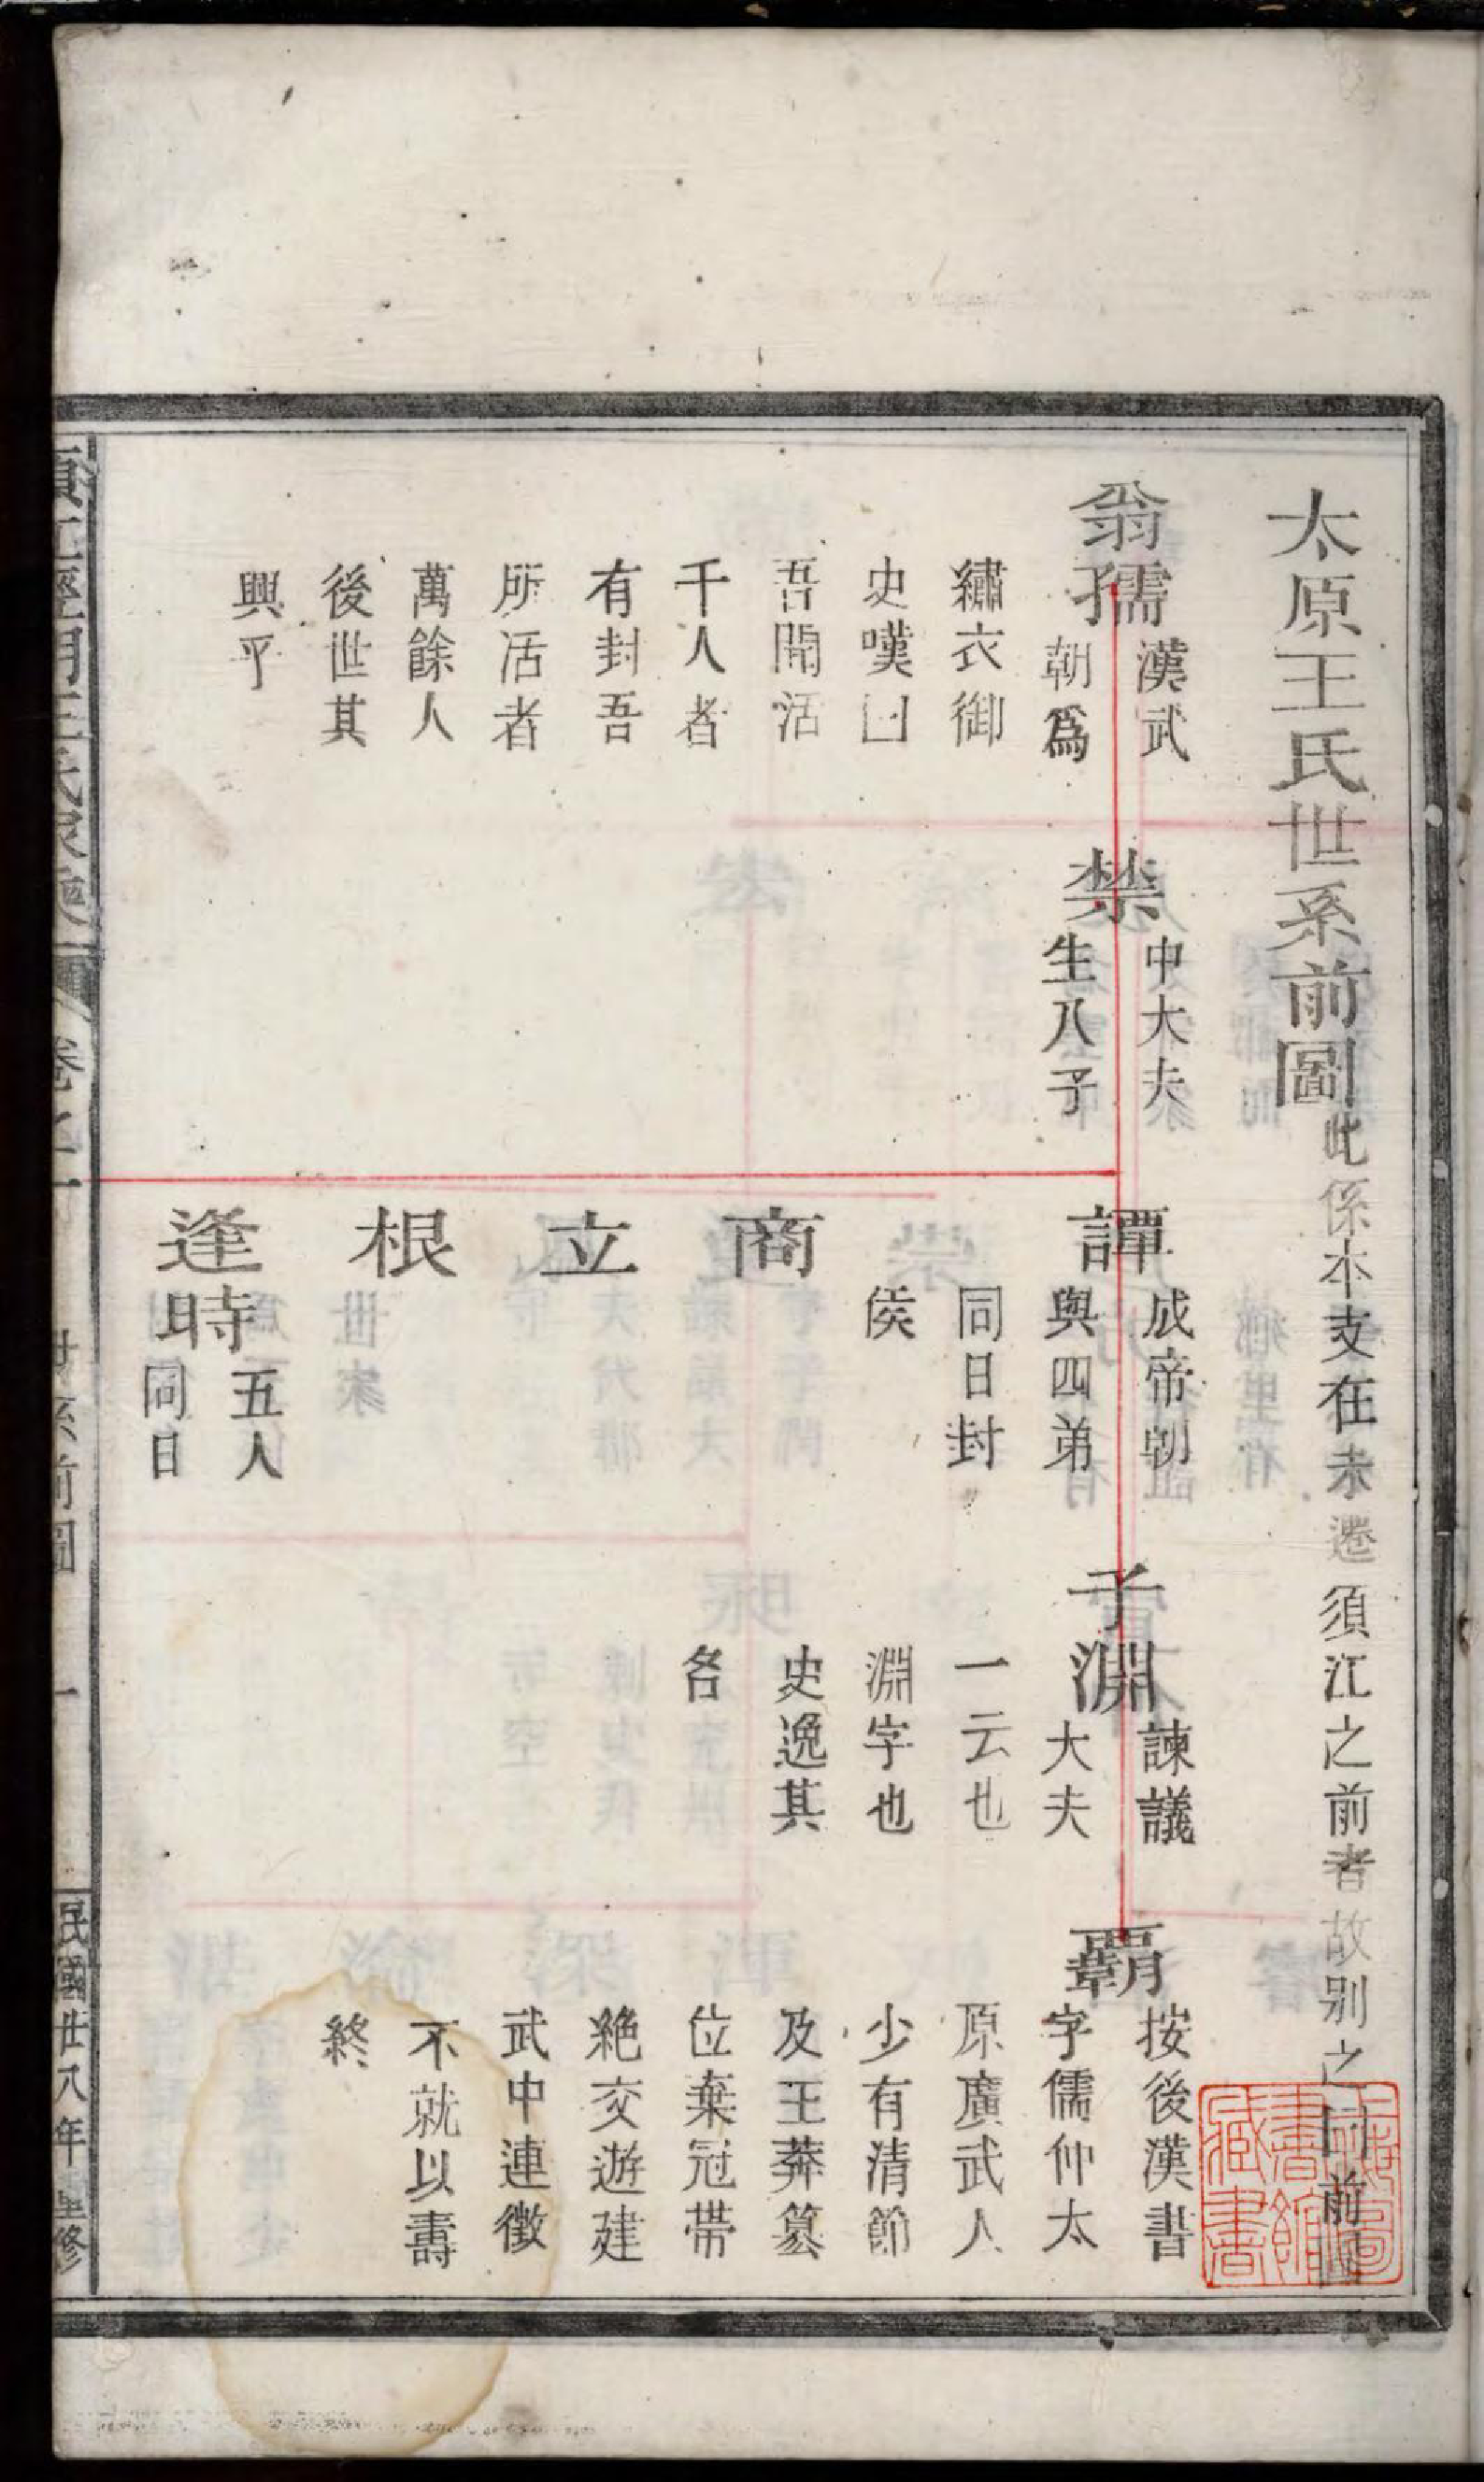 太原王氏世系前圖此係本支在未遷須江之前者故別之曰前圖
翁孺
漢武
朝爲
繡衣御
史嘆曰
吾聞活
千人者
有封吾
所活者
萬餘人
後世其
興乎
禁
中大夫
生八子
譚
成帝朝
與四弟
同日封
侯
商
立
根
逢時
五人
同日
子淵
諫議
大夫
一云也
淵字也
史逸其
名
霸
按後漢書
字儒仲太
原廣武人
少有清節
及王莽篡
位棄冠帶
絶交遊建
武中連徵
不就以壽
終
王氏家乘
卷之一
世系前圖
一
民國廿八年重修